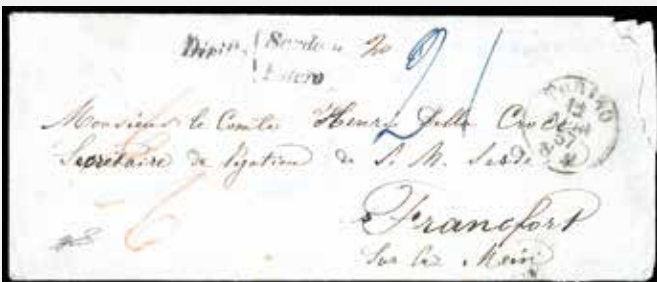 Diritti { Sardi 20
Estero
21
TORINO
12
57
Monsieur le Comte Henri Della Croce
Secrétaire de légation de S. M. Sarde
6
Francfort
Sur le Mein